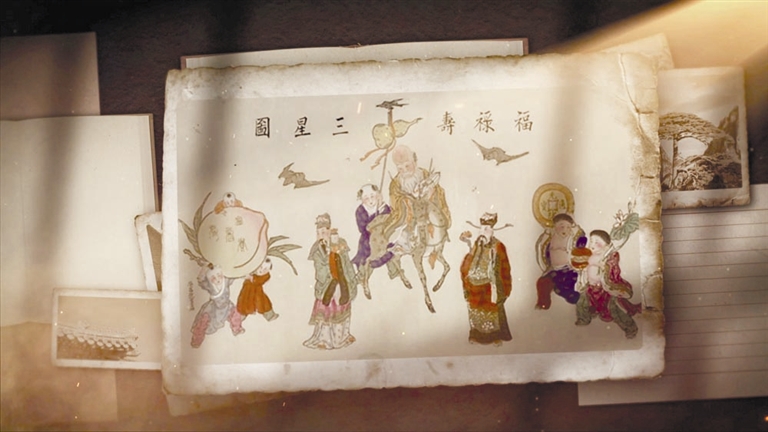 福祿壽三星圖